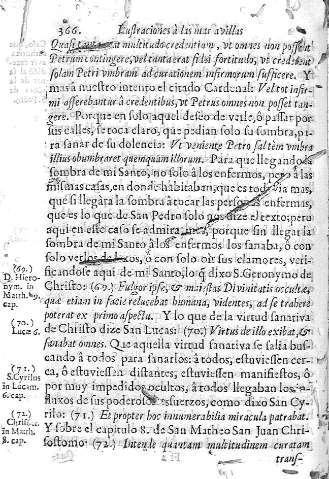 366. Ilustraciones à las maravillas
Quasi tanta multitudo credentium, vt omnes non possent
Petrum contingere, vel tanta erat fidei fortitudo, vt crederent
solam Petri vmbram ad curationem infirmorum sufficere. Y
mas à nuestro intento el citado Cardenal: Vel tot infir-
mi asserebantur à credentibus, vt Petrus omnes non posset tan-
gere. Porque en solo aquel deseo de verle, ò passar por
sus calles, se toca claro, que pedian solo su sombra, pa-
ra sanar de su dolencia: Vt veniente Petro saltem vmbra
illius obumbraret quemquam illorum. Para que llegando
sombra de mi Santo, no solo à los enfermos, pero à las
mismas casas, en donde habitaban, que es mas,
que si llegàra la sombra à tocar las personas enfermas,
que es lo que de San Pedro solo nos dize el texto; pero
aqui en este caso se admira mas, porque sin llegar la
sombra de mi Santo à los enfermos los sanaba, ò con
solo verlos ò con solo oir sus clamores, veri-
ficandose aqui de mi Santo, lo q̃ dixo S. Geronymo de
Christo: (69.) Fulgor ipse, & maiestas Divinitatis occultæ,
quæ etiam in facie relucebat humana, videntes, ad se trahere
poterat ex primo aspectu. Y lo que de la virtud sanativa
de Christo dize San Lucas: (70.) Virtus de illo exibat, &
sanabat omnes. Que aquella virtud sanativa se salia bus-
cando à todos para sanarlos: à todos, estuviessen cer-
ca, ò estuviessen distantes, estuviessen manifiestos, ò
por muy impedidos ocultos, à todos llegaban los in-
fluxos de sus poderosos esfuerzos, como dixo San Cy-
rilo: (71.) Et propter hoc innumerabilia miracula patrabat.
Y sobre el capitulo 8. de San Matheo San Juan Chri-
sostomo (72.) Intende quantam multitudinem curatam
trans-
(69.)
D. Hiero-
nym. in
Matth. 9.
cap.
(70.)
Lucæ 6.
(71.)
S. Cyrillus
in Lucam.
6. cap.
(72.)
Chrisost.
in Matth.
8. cap.